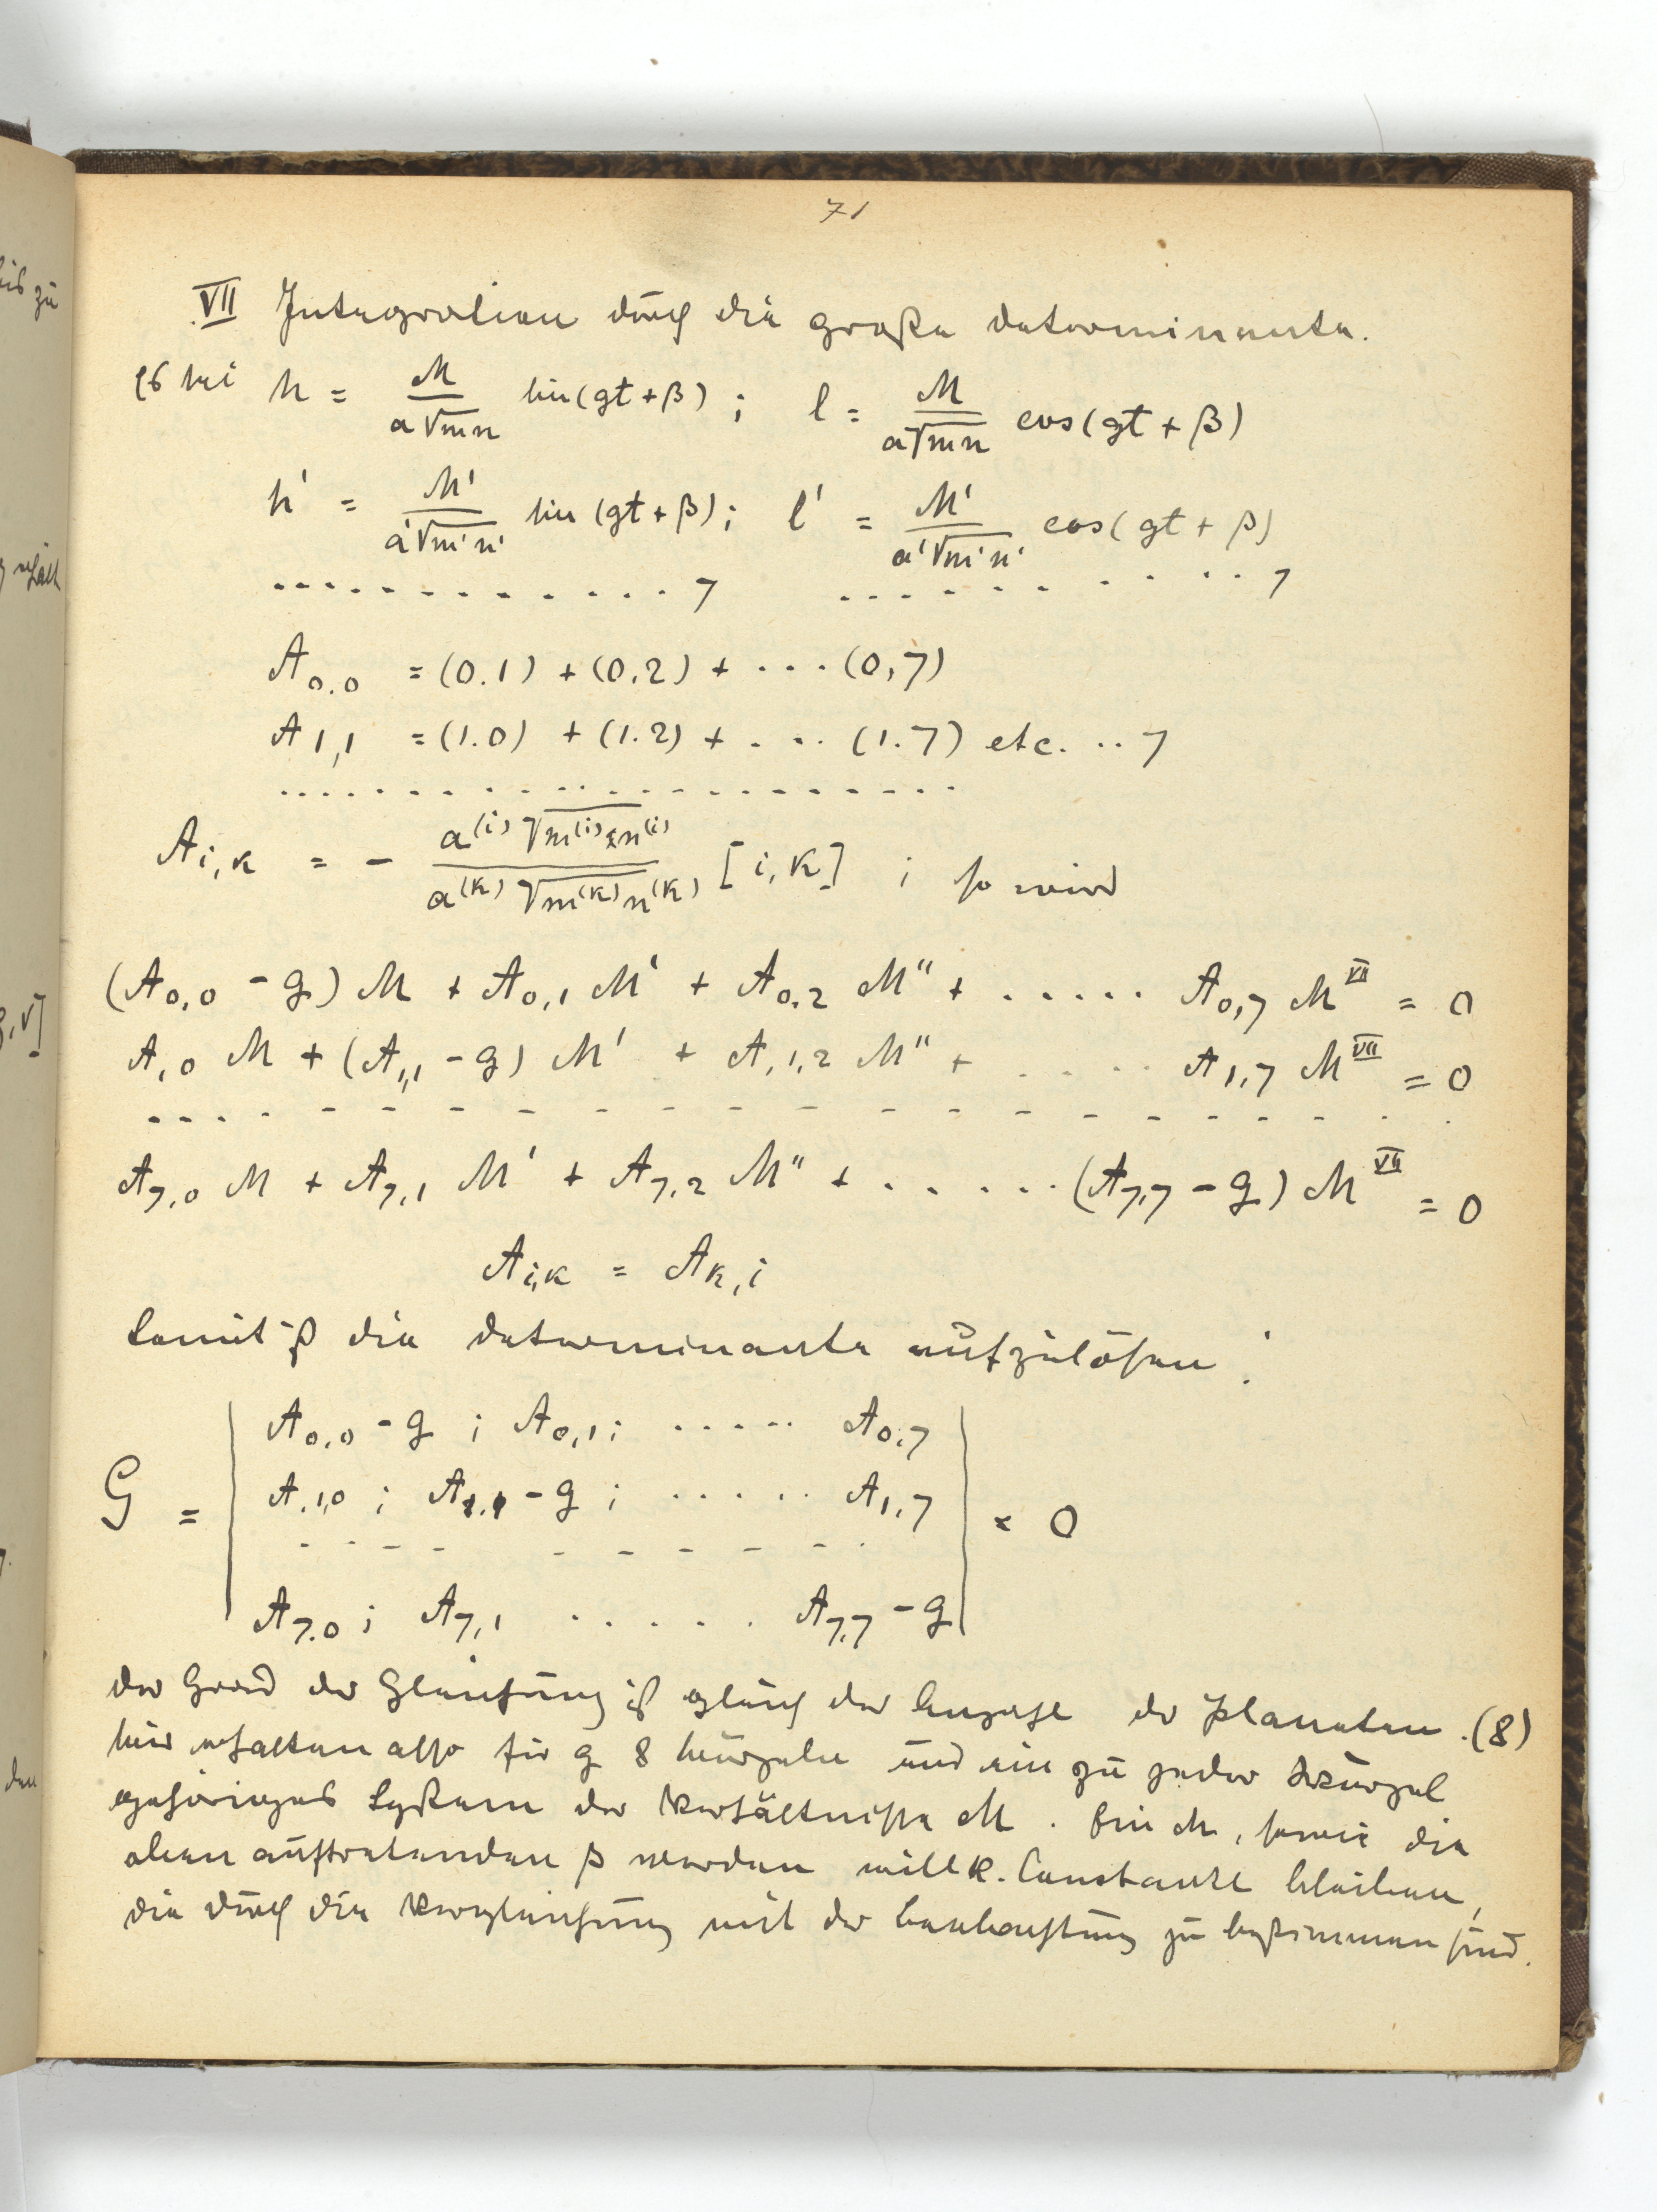 71
VII Integration durch die große Determinante.
Es sei h = M/(a√mn) sin(gt+β) ; l = M/(a√mn) cos(gt+β)
h' = M'/(a'√m'n') sin(gt+β) ; l' = M'/(a'√m'n') cos(gt+β)
. . . . . . . . . . . . 7 . . . . . . . . . . 7
A0.0 = (0.1) + (0,2) + ... (0,7)
A1,1 = (1.0) + (1.2) + . ... (1.7) etc. .. 7
. . . . . . . . . . . . . . . . . . . .
Ai,k = - a(i) √m(i)n(i) / a(k) √m(k)n(k) [i,k] ; so wird
(A0,0 - g) M + A0,1 M' + A0.2 M'' + ..... A0,7 MVII = 0
A1,0 M + (A1,1 - g) M' + A1,2 M'' + ..... A1,7 MVII = 0
- - - - - - - - - - - - - - - - - - - -
A7,0 M + A7,1 M' + A7,2 M'' + ..... (A7,7 - g) MVII = 0
Ai,k = Ak,i
Somit ist die Determinante aufzulösen :
A0,0 - g ; A0,1 ; ..... A0,7
G = | A1,0 ; A1,1 - g ; ..... A1,7 | = 0
- - - - - - - - - -
A7,0 ; A7,1 ..... A7,7 - g
Der Grad der Gleichung ist gleich der Anzahl der Planeten. (8)
Wir erhalten also für g 8 Wurzeln und ein zu jeder Wurzel
gehöriges System der Verhältnisse M. Ein M, sowie die
oben auftretenden β werden willk. Constante bleiben,
die durch die Vergleichung mit der Beobachtung zu bestimmen sind.